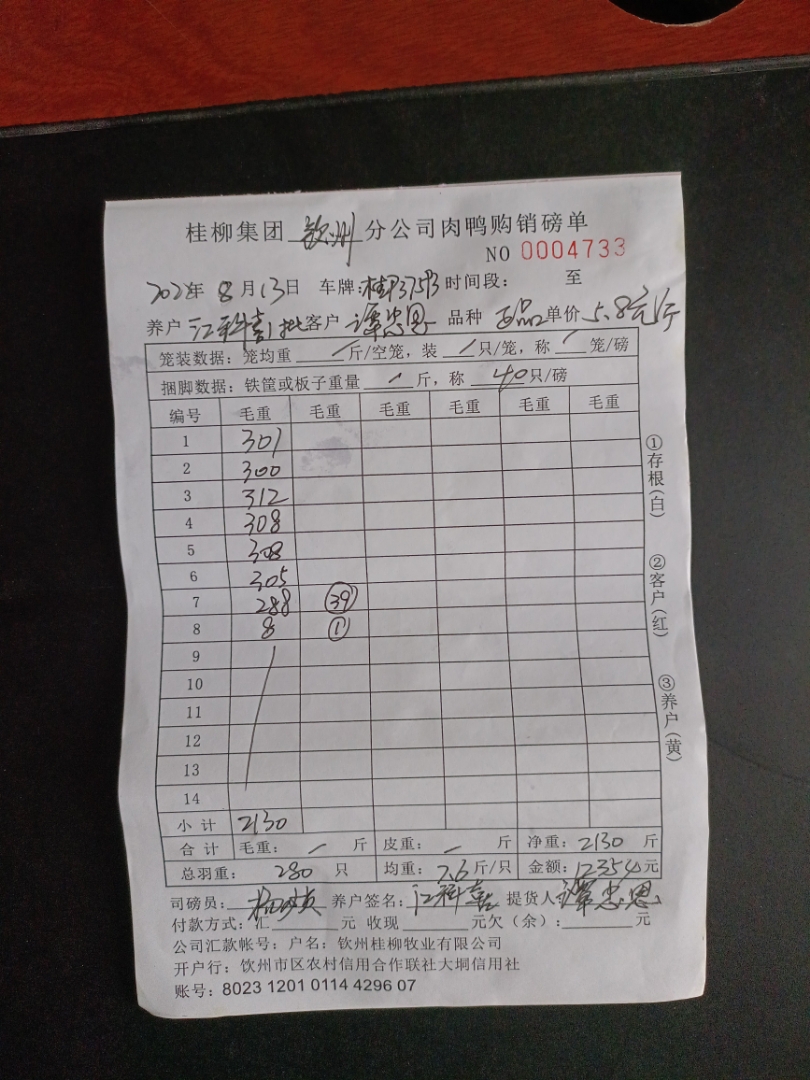 桂柳集团 钦州 分公司肉鸭购销磅单
NO 0004733
2022年 8月13日 车牌: 时间段: 至
养户 江科 批客户 谭忠恩 品种 单价 5.8元/斤
笼装数据: 笼均重 / 斤/空笼, 装 / 只/笼, 称 / 笼/磅
捆脚数据: 铁筐或板子重量 / 斤, 称 40只/磅
编号 毛重 毛重 毛重 毛重 毛重 毛重
1 301
2 300
3 312
4 308
5 308
6 305
7 288 39
8 8 1
9
10
11
12
13
14
小计 2130
合计 毛重: / 斤 皮重: / 斤 净重: 2130 斤
总羽重: 280 只 均重: 7.6斤/只 金额: 12354元
司磅员: 养户签名: 江科 提货人: 谭忠恩
付款方式: 汇 元 收现 元欠(余): 元
公司汇款帐号: 户名: 钦州桂柳牧业有限公司
开户行: 钦州市区农村信用合作联社大垌信用社
账号: 8023 1201 0114 4296 07
①存根(白)
②客户(红)
③养户(黄)